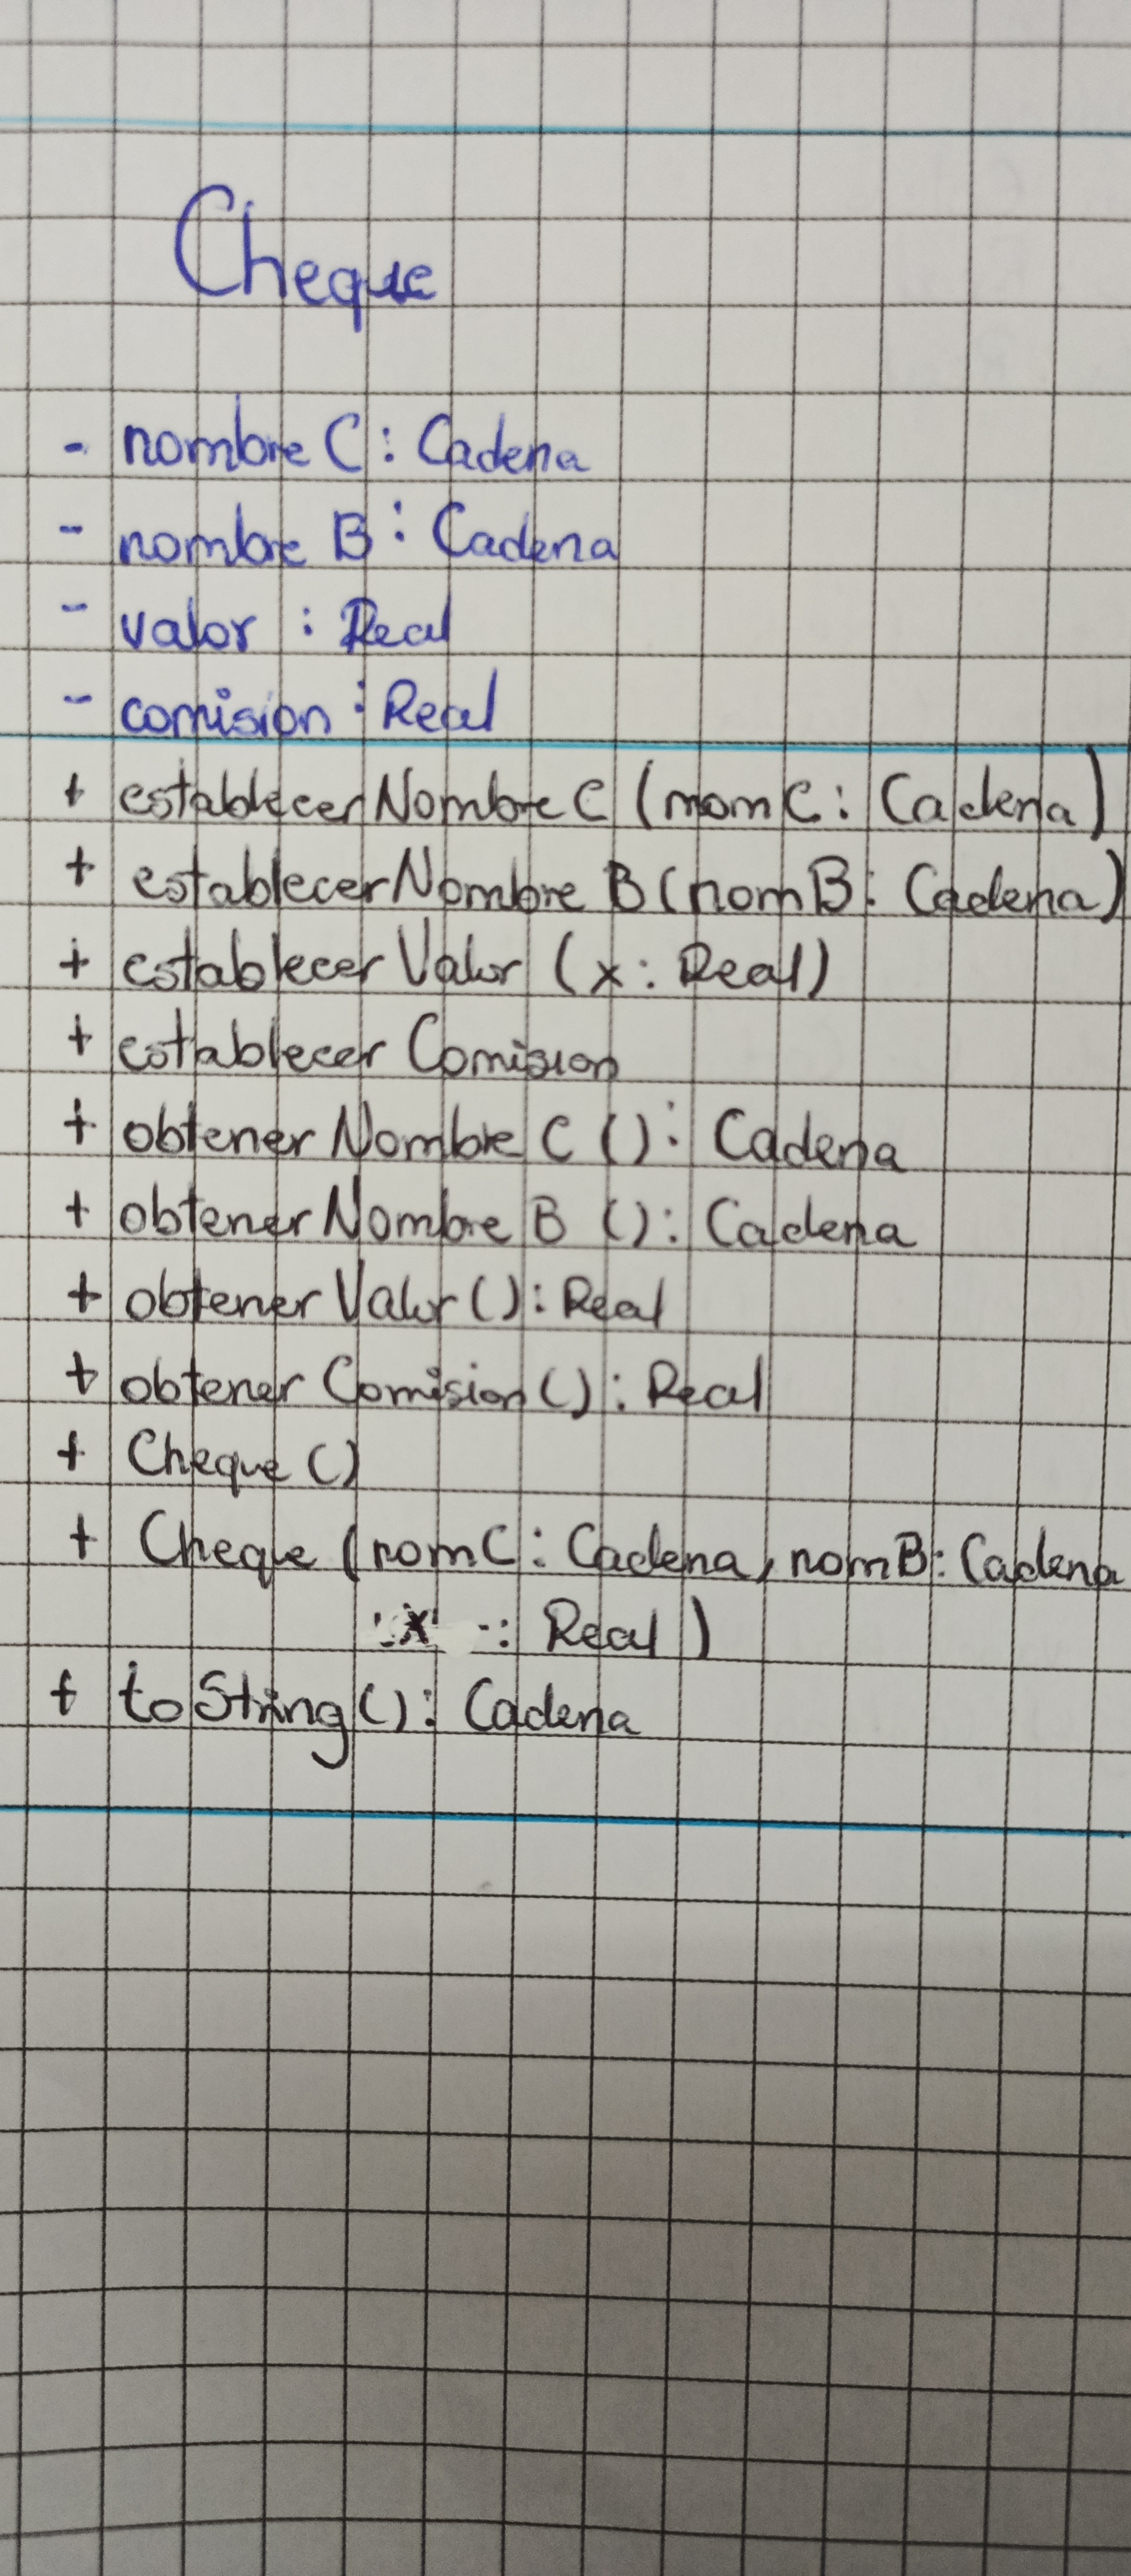 Cheque
- nombre C : Cadena
- nombre B : Cadena
- valor : Real
- comision : Real
+ establecerNombre C (nomC : Cadena)
+ establecerNombre B (nomB : Cadena)
+ establecer Valor (x : Real)
+ establecer Comision
+ obtener Nombre C () : Cadena
+ obtener Nombre B () : Cadena
+ obtener Valor () : Real
+ obtener Comision () : Real
+ Cheque ()
+ Cheque (nomC : Cadena, nomB : Cadena
x : Real)
+ toString () : Cadena